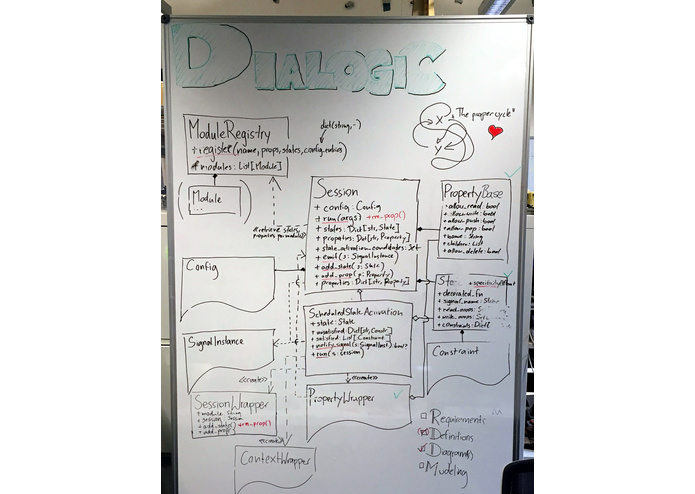 DIALOGIC
ModuleRegistry
dict(string,-)
+ register(name, props, states, config_entries)
# modules: List[Module]
Module
...
X
Y
"The proper cycle"
Session
+ config: Config
+ run(args) +rm_prop()
+ states: Dict[str, State]
+ properties: Dict[str, Property]
+ state_activation_candidates: Set
+ emit(s: SignalInstance)
+ add_state(s: State)
+ add_prop(p: Property)
+ properties: Dict[str, Property]
PropertyBase
+ allow_read: bool
+ allow_write: bool
+ allow_push: bool
+ allow_pop: bool
+ name: String
+ children: List
+ allow_delete: bool
Config
+ specificity
+ decorated_fn
+ signal_name:
+ constraints: Dict[
ScheduledStateActivation
+ state: State
+ unsatisfied: Dict[str, Constr]
+ satisfied: List[Constraint]
+ notify_signal(s: SignalInst): bool
+ run(s: Session)
SignalInstance
Constraint
<<create>>
<<create>>
SessionWrapper
+ module: String
+ session: Session
+ add_state() +rm_prop()
+ add_prop()
PropertyWrapper
<<create>>
ContextWrapper
Requirements
Definitions
Diagram(s)
Modeling